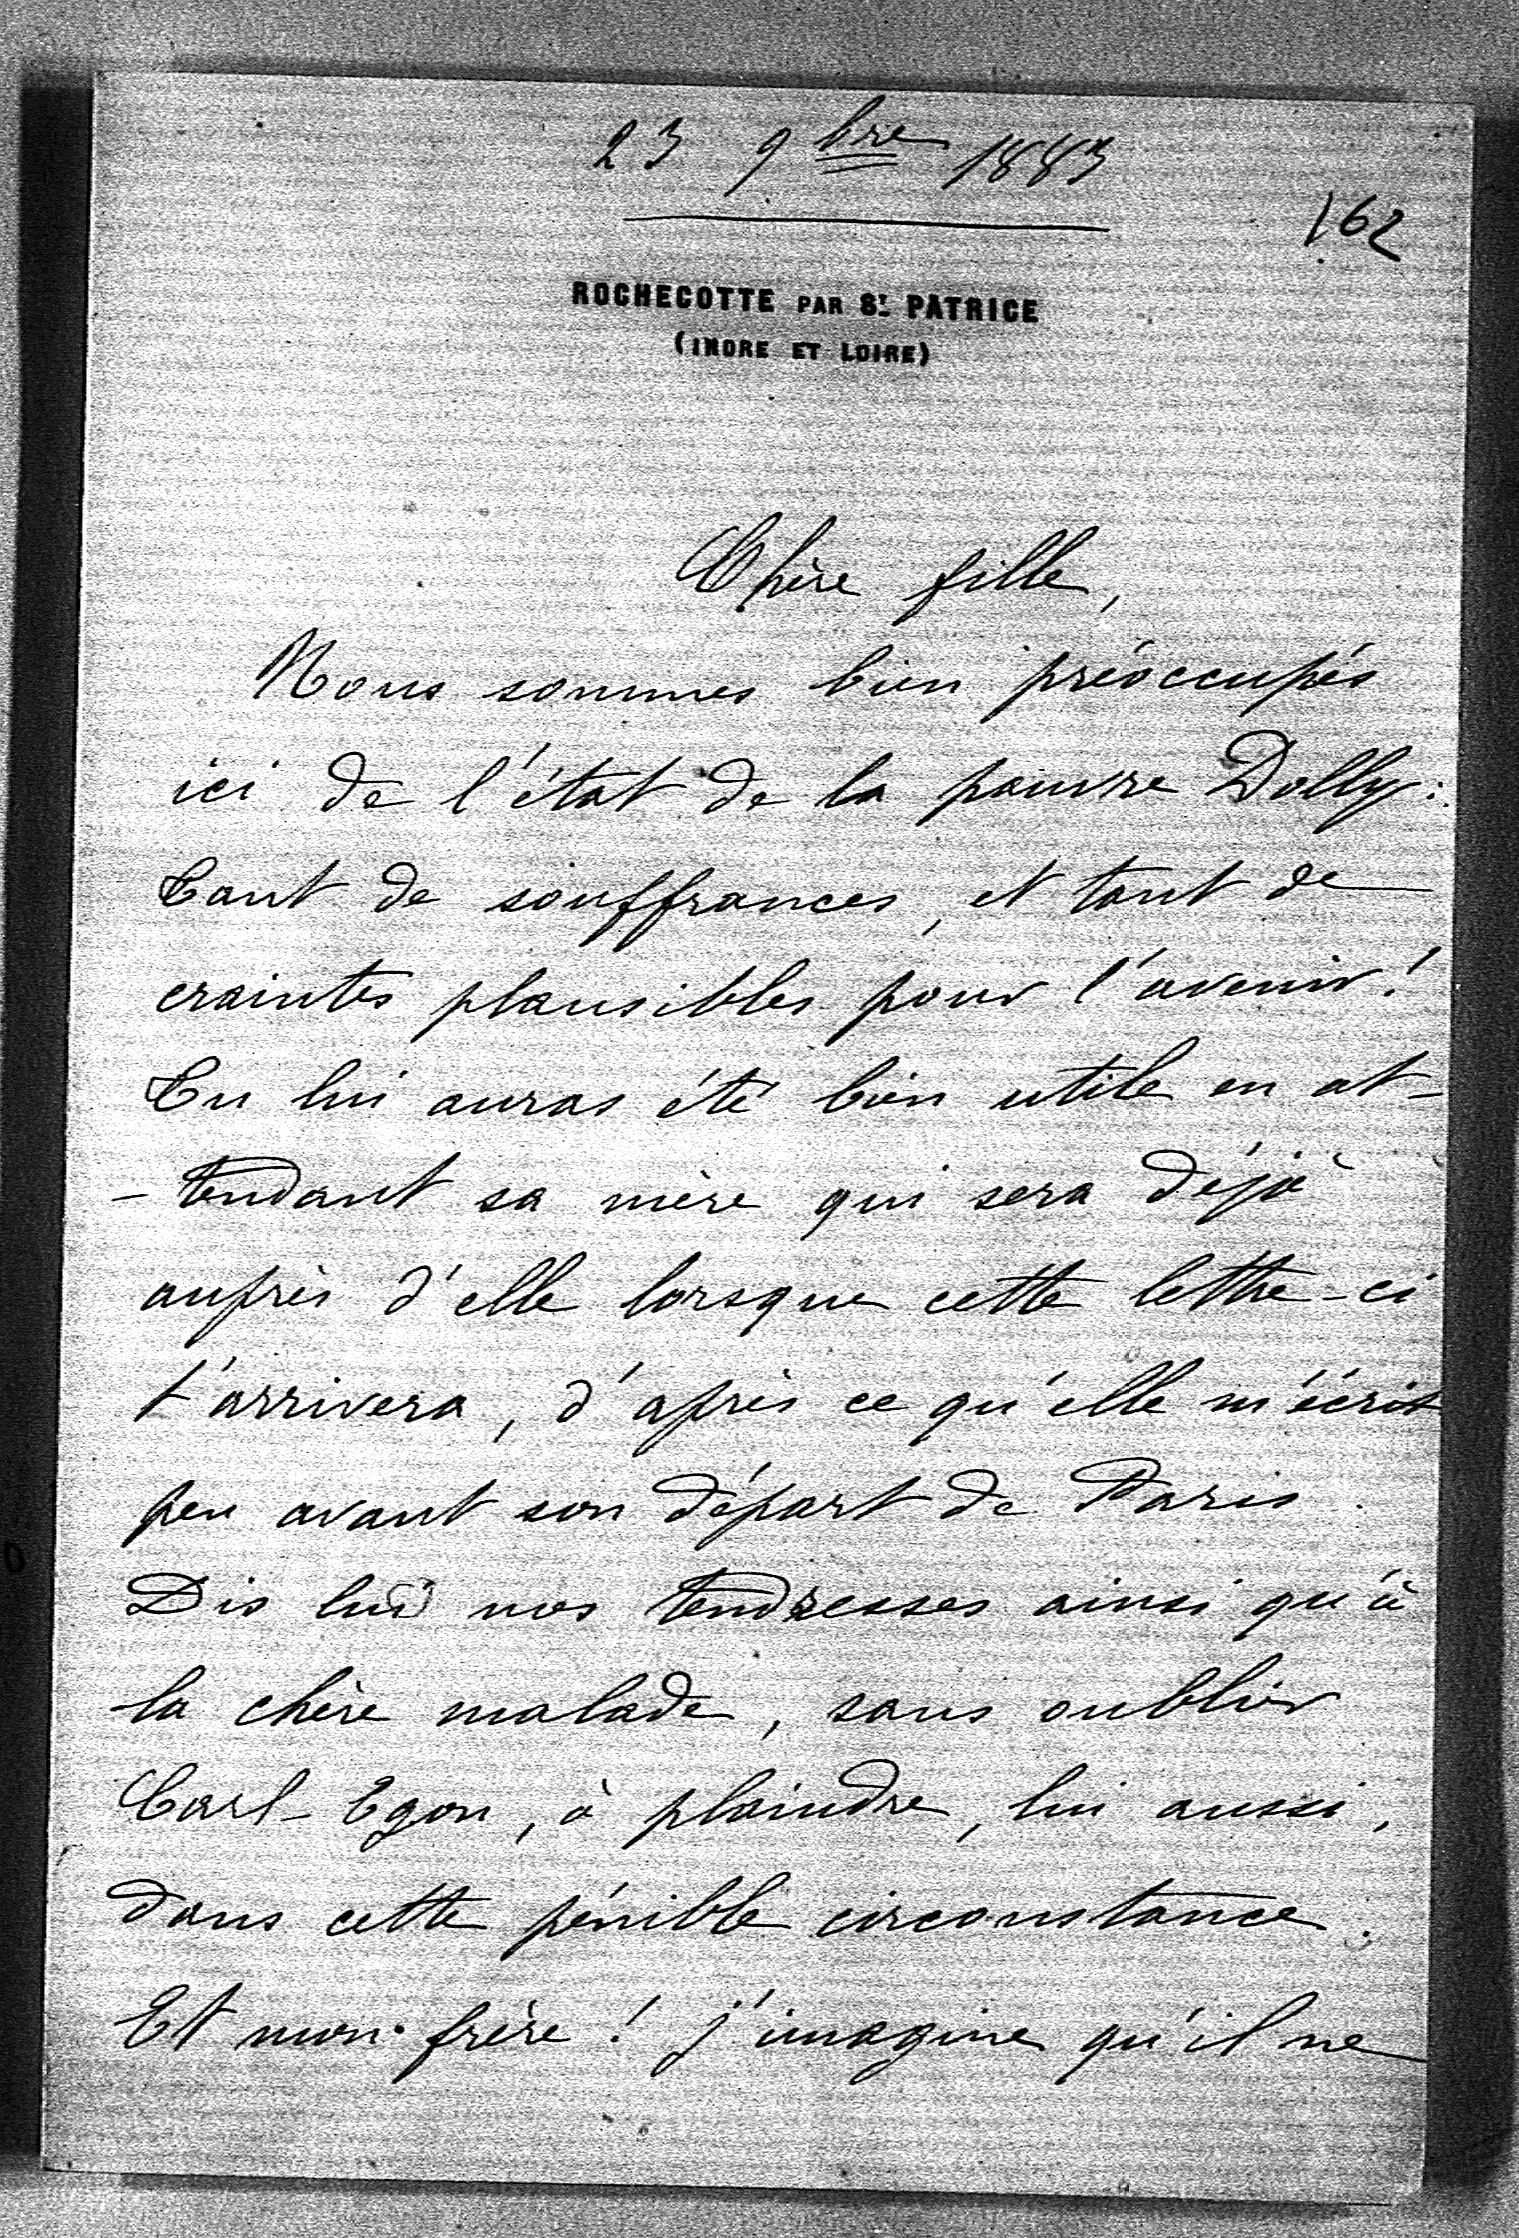 23 9bre 1883
162
ROCHECOTTE PAR ST. PATRICE
(INDRE ET LOIRE)
Chère fille,
Nous sommes bien préoccupés
ici de l'état de la pauvre Dolly :
Tant de souffrances, et tant de
craintes plausibles pour l'avenir !
Tu lui auras été bien utile en at-
- tendant sa mère qui sera déjà
auprès d'elle lorsque cette lettre-ci
t'arrivera, d'après ce qu'elle m'écrit
peu avant son départ de Paris.
Dis lui nos tendresses ainsi qu'à
la chère malade, sans oublier
Carl-Egon, à plaindre, lui aussi,
dans cette pénible circonstance.
Et mon frère ! j'imagine qu'il ne